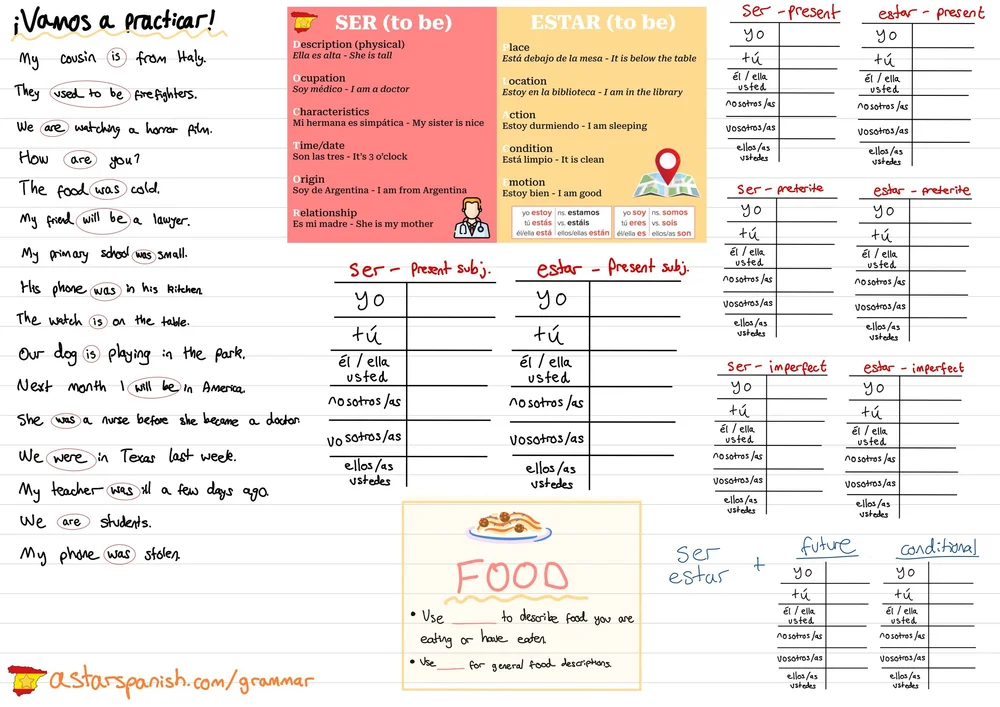 ¡Vamos a practicar!
My cousin is from Italy.
They used to be firefighters.
We are watching a horror film.
How are you?
The food was cold.
My friend will be a lawyer.
My primary school was small.
His phone was in his kitchen.
The watch is on the table.
Our dog is playing in the park.
Next month I will be in America.
She was a nurse before she became a doctor
We were in Texas last week.
My teacher was ill a few days ago.
We are students.
My phone was stolen.
astarspanish.com/grammar
SER (to be)
Description (physical)
Ella es alta - She is tall
Ocupation
Soy médico - I am a doctor
Characteristics
Mi hermana es simpática - My sister is nice
Time/date
Son las tres - It's 3 o'clock
Origin
Soy de Argentina - I am from Argentina
Relationship
Es mi madre - She is my mother
ESTAR (to be)
Place
Está debajo de la mesa - It is below the table
Location
Estoy en la biblioteca - I am in the library
Action
Estoy durmiendo - I am sleeping
Condition
Está limpio - It is clean
Emotion
Estoy bien - I am good
yo estoy ns. estamos
tú estás vs. estáis
él/ella está ellos/ellas están
yo soy ns. somos
tú eres vs. sois
él/ella es ellos/as son
ser - present subj.
yo
tú
él / ella
usted
nosotros/as
vosotros/as
ellos/as
ustedes
estar - present subj.
yo
tú
él / ella
usted
nosotros/as
vosotros/as
ellos/as
ustedes
FOOD
• Use ______ to describe food you are
eating or have eaten
• Use ____ for general food descriptions.
ser - present
yo
tú
él / ella
usted
nosotros/as
vosotros/as
ellos/as
ustedes
estar - present
yo
tú
él / ella
usted
nosotros/as
vosotros/as
ellos/as
ustedes
ser - preterite
yo
tú
él / ella
usted
nosotros/as
vosotros/as
ellos/as
ustedes
estar - preterite
yo
tú
él / ella
usted
nosotros/as
vosotros/as
ellos/as
ustedes
ser - imperfect
yo
tú
él / ella
usted
nosotros/as
vosotros/as
ellos/as
ustedes
estar - imperfect
yo
tú
él / ella
usted
nosotros/as
vosotros/as
ellos/as
ustedes
ser
estar
+
future
yo
tú
él / ella
usted
nosotros/as
vosotros/as
ellos/as
ustedes
conditional
yo
tú
él / ella
usted
nosotros/as
vosotros/as
ellos/as
ustedes